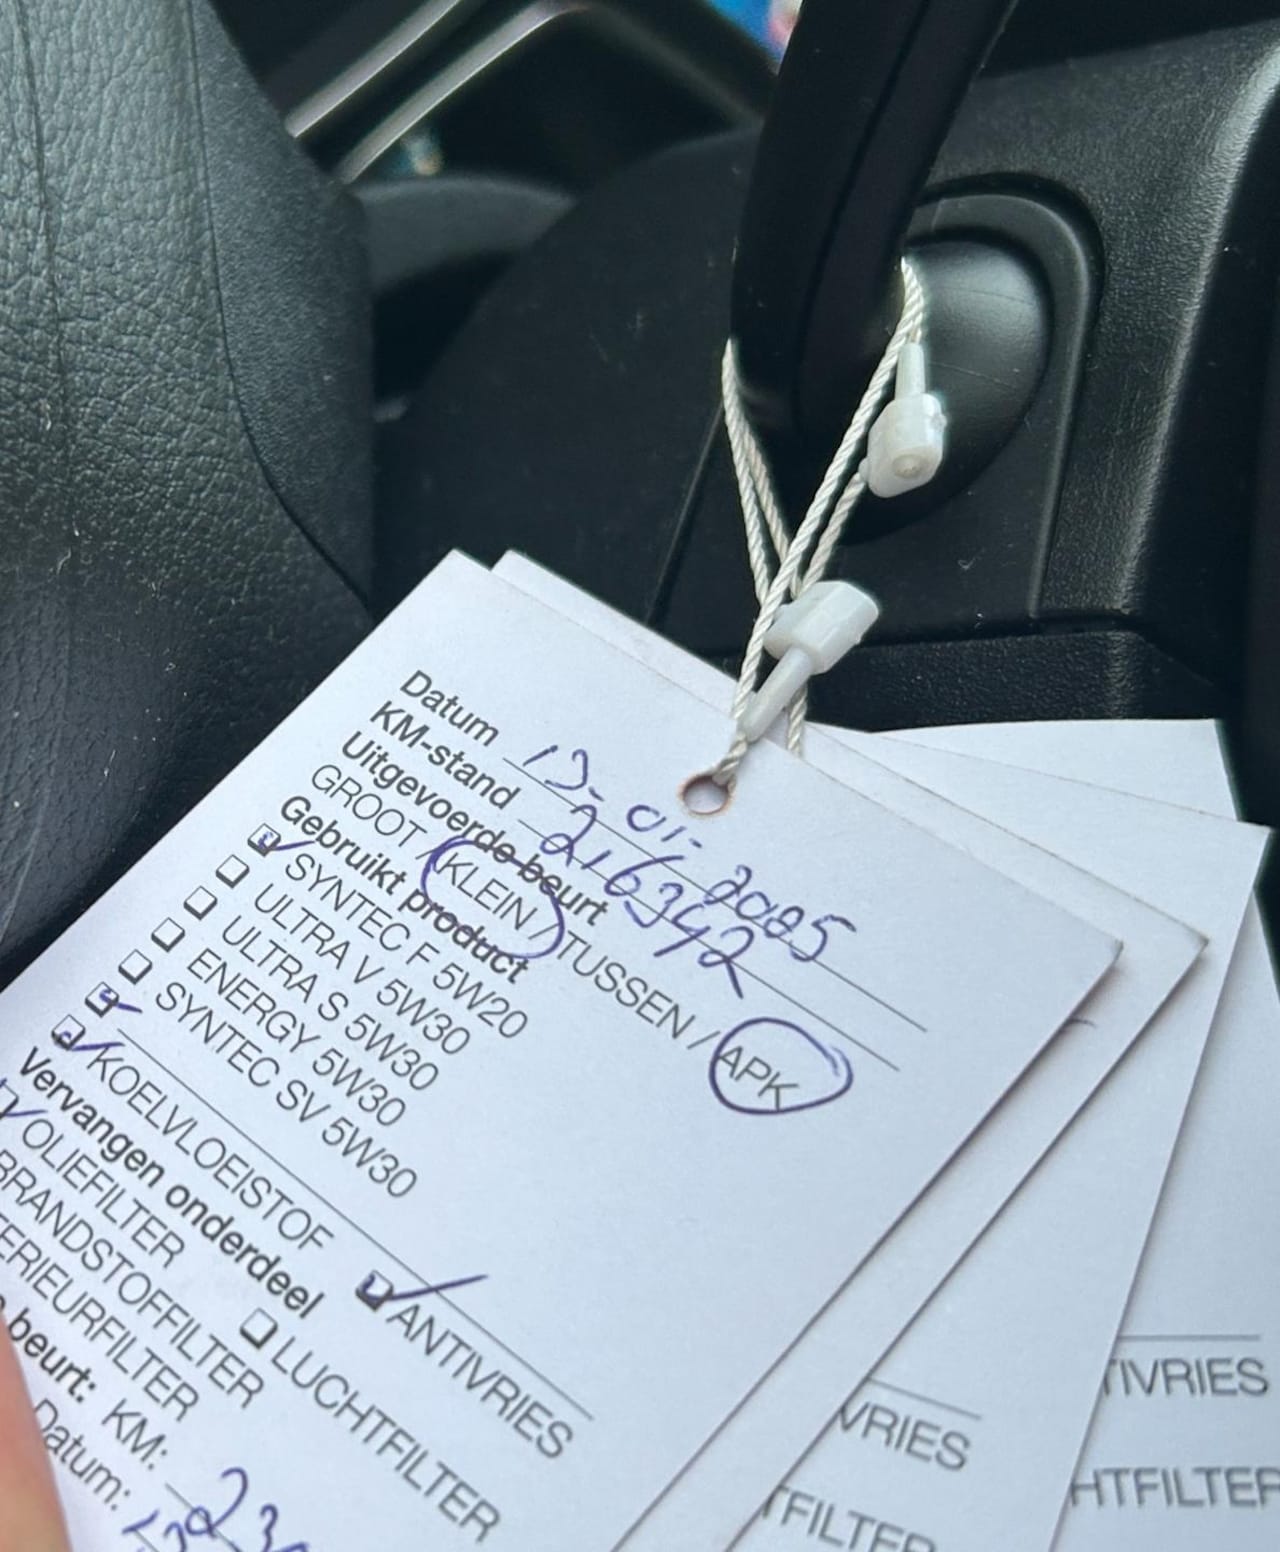 Datum 13-01-2025
KM-stand 216342
Uitgevoerde beurt
GROOT / KLEIN / TUSSEN / APK
Gebruikt product
SYNTEC F 5W20
ULTRA V 5W30
ULTRA S 5W30
ENERGY 5W30
SYNTEC SV 5W30
KOELVLOEISTOF ANTIVRIES
Vervangen onderdeel
OLIEFILTER LUCHTFILTER
BRANDSTOFFILTER
ERIEURFILTER
beurt: KM: 23
Datum: 13
VRIES
TFILTER
TIVRIES
HTFILTER